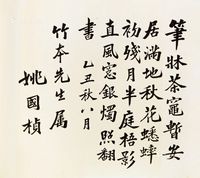 筆牀茶竈暫安
居滿地秋花蟋蟀
初殘月半庭梧影
直風窓銀燭照翻
書 乙丑秋八月
竹本先生属
姚國楨